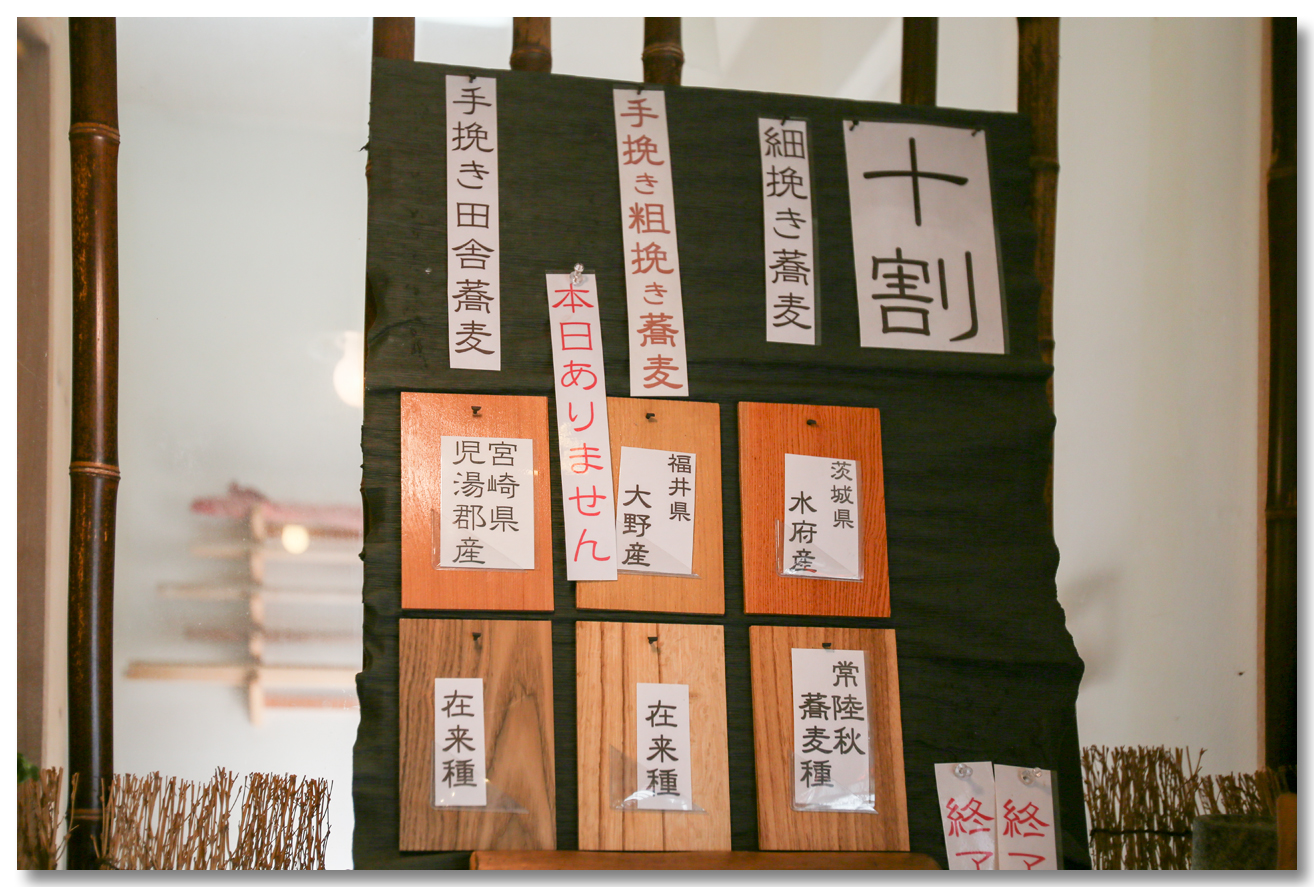 十割
細挽き蕎麦
手挽き粗挽き蕎麦
本日ありません
手挽き田舎蕎麦
茨城県
水府産
福井県
大野産
宮崎県
児湯郡産
常陸秋
蕎麦種
在来種
在来種
終了
終了